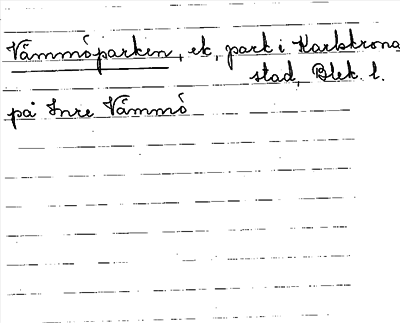 Vämmöparken, ek, park i Karlskrona
stad, Blek. l.
på Inre Vämmö